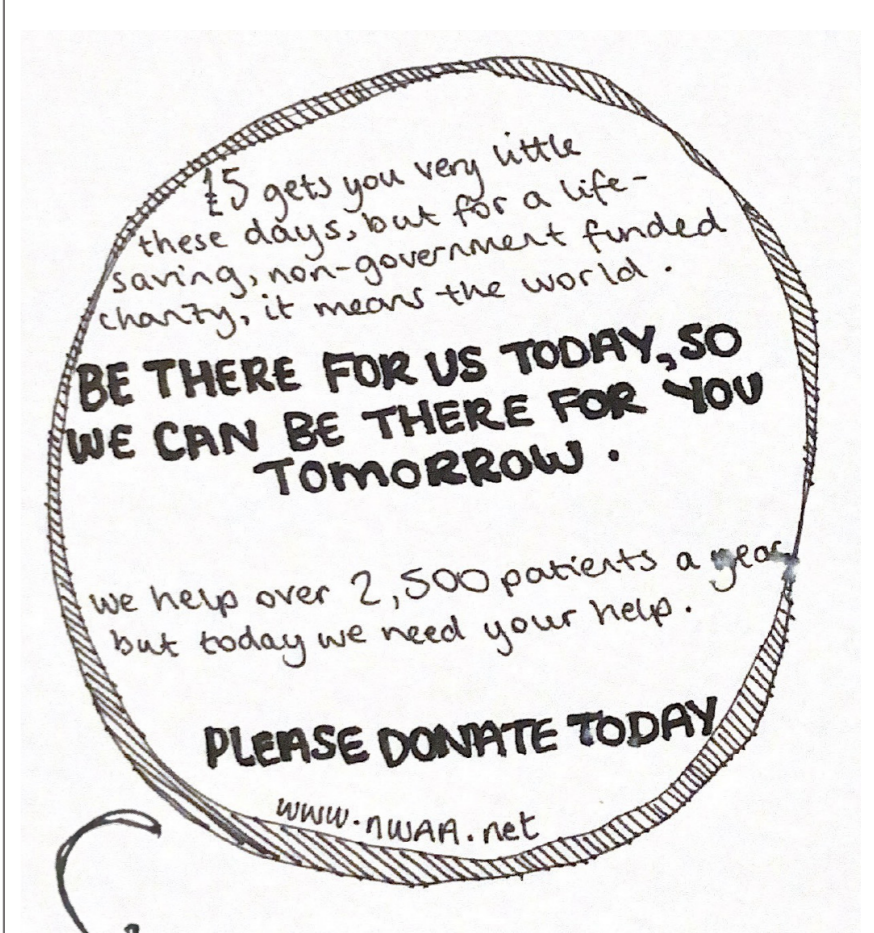 £5 gets you very little
these days, but for a life-
saving, non-government funded
charity, it means the world.
BE THERE FOR US TODAY, SO
WE CAN BE THERE FOR YOU
TOMORROW.
we help over 2,500 patients a year
but today we need your help.
PLEASE DONATE TODAY
www.nwAA.net